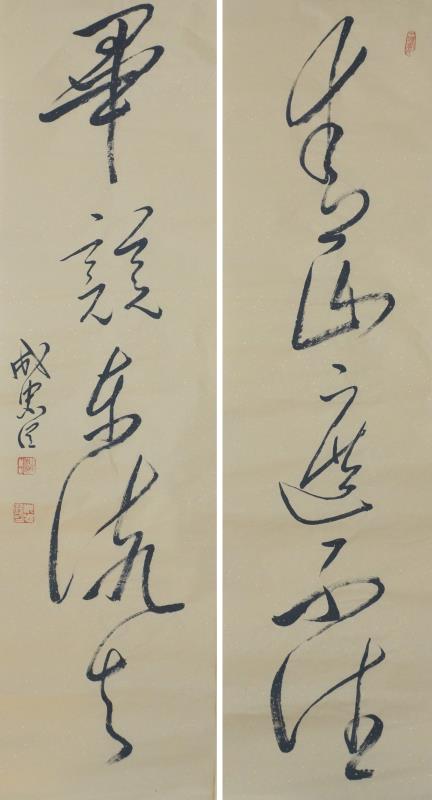 青山遮不住
畢竟東流去
成忠臣